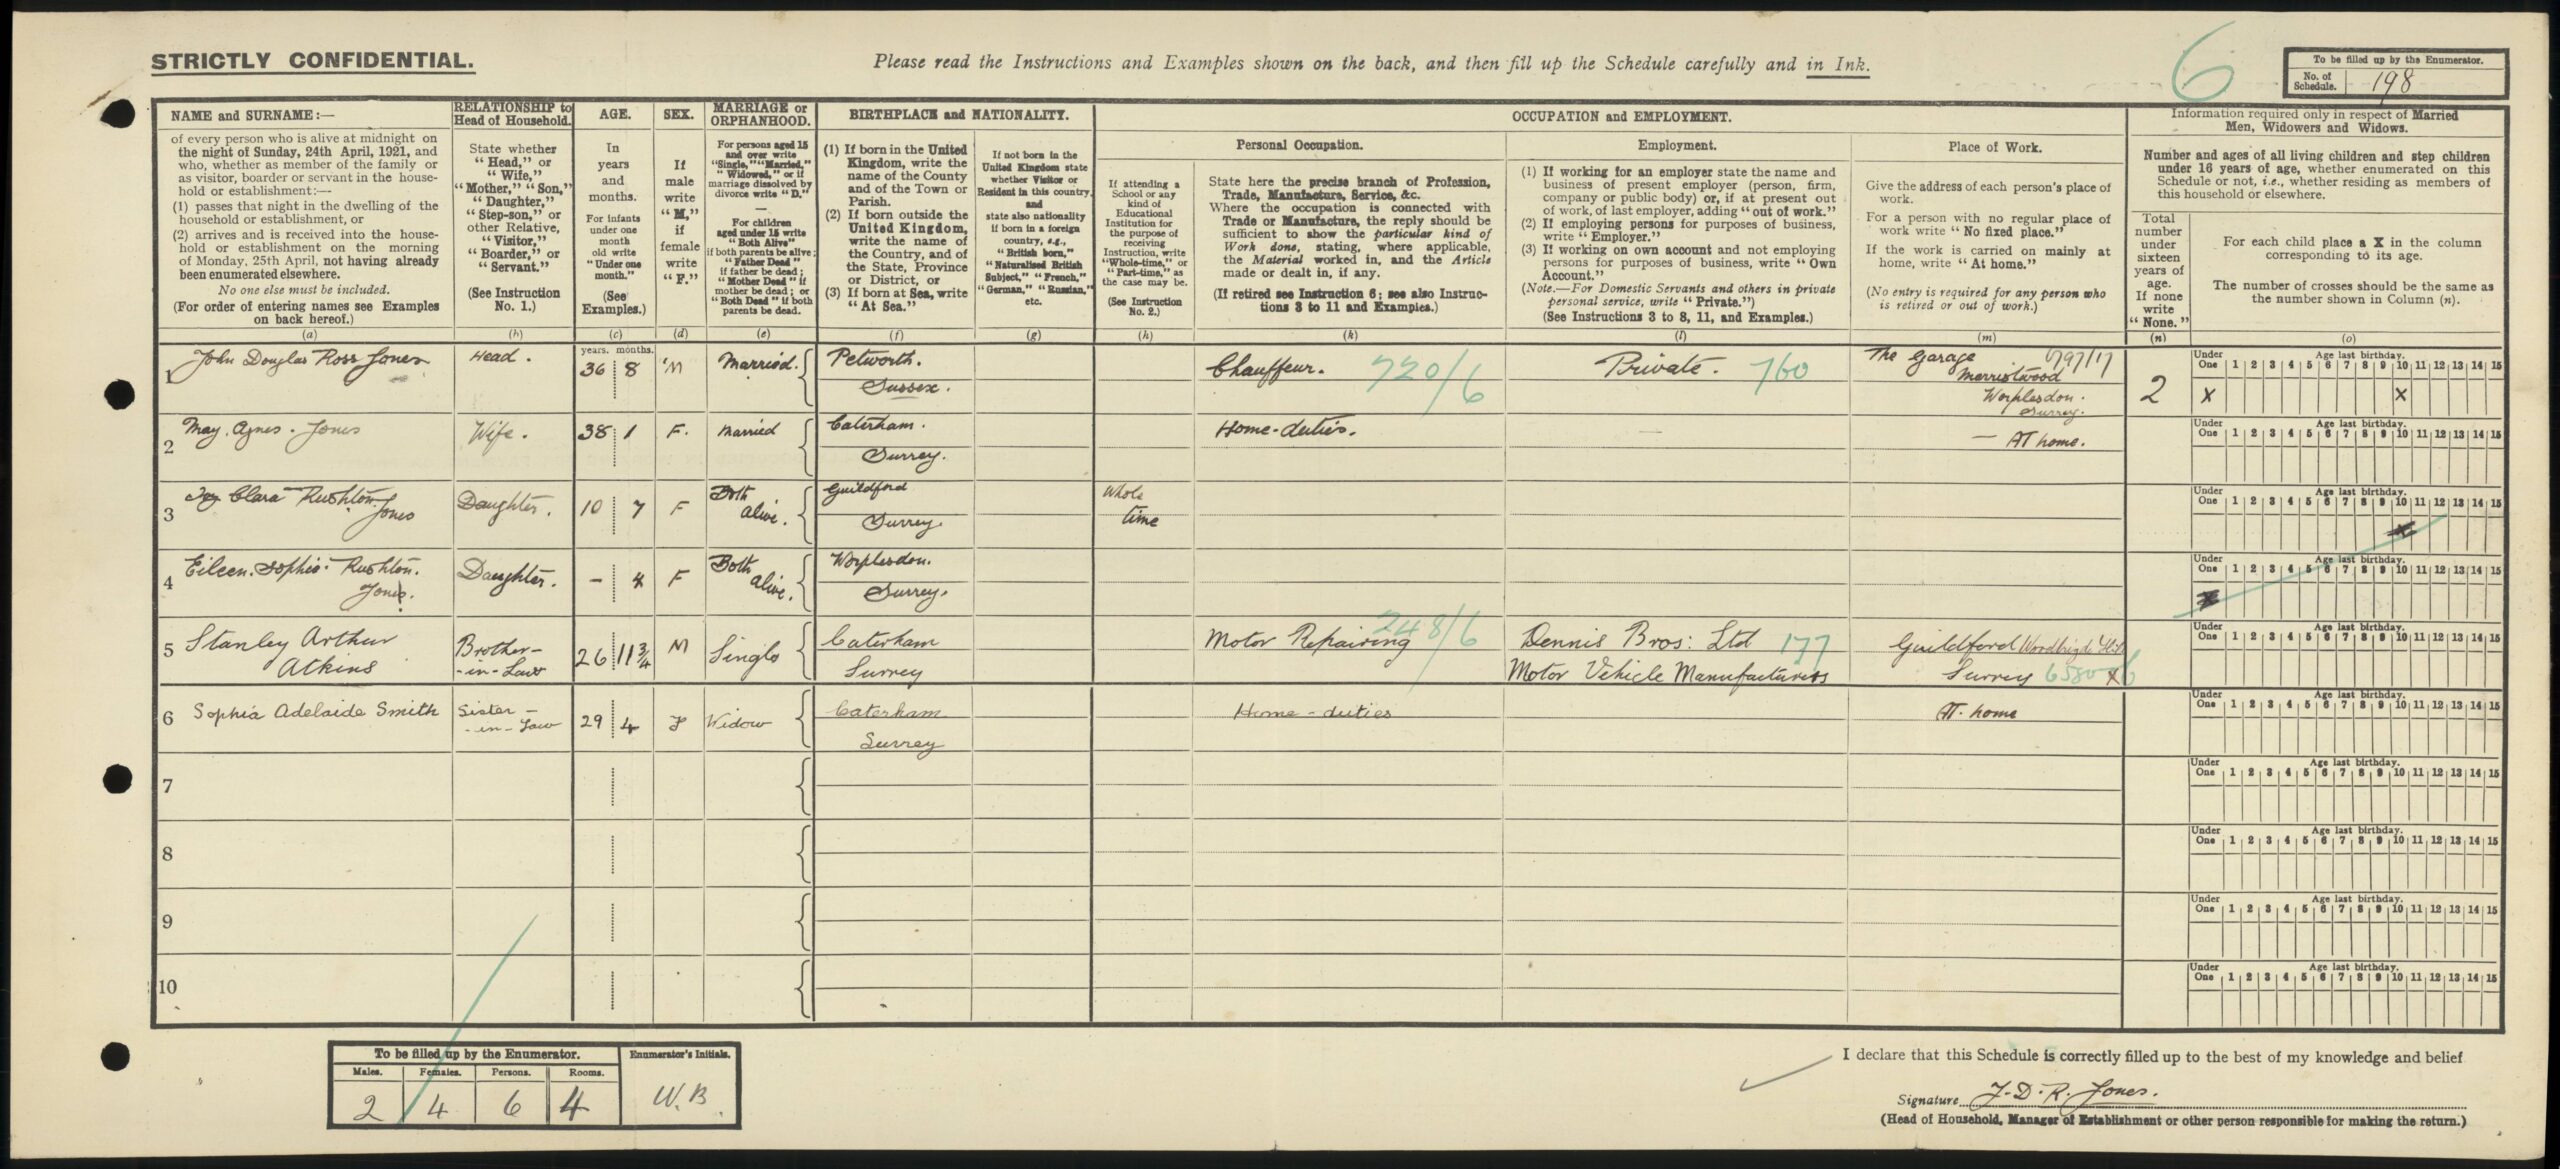 STRICTLY CONFIDENTIAL.
Please read the Instructions and Examples shown on the back, and then fill up the Schedule carefully and in Ink.
6
To be filled up by the Enumerator.
No. of Schedule. 198
NAME and SURNAME:—
of every person who is alive at midnight on
the night of Sunday, 24th April, 1921, and
who, whether as member of the family or
as visitor, boarder or servant in the house-
hold or establishment:—
(1) passes that night in the dwelling of the
household or establishment, or
(2) arrives and is received into the house-
hold or establishment on the morning
of Monday, 25th April, not having already
been enumerated elsewhere.
No one else must be included.
(For order of entering names see Examples
on back hereof.)
(a)
RELATIONSHIP to
Head of Household.
State whether
"Head," or
"Wife,"
"Mother," "Son,"
"Daughter,"
"Step-son," or
other Relative,
"Visitor,"
"Boarder," or
"Servant."
(See Instruction
No. 1.)
(b)
AGE.
In
years
and
months.
For infants
under one
month
old write
"Under one
month."
(See
Examples.)
(c)
SEX.
If
male
write
"M,"
if
female
write
"F."
(d)
MARRIAGE or
ORPHANHOOD.
For persons aged 15
and over write
"Single," "Married,"
"Widowed," or if
marriage dissolved by
divorce write "D."
—
For children
aged under 15 write
"Both Alive"
if both parents be alive;
"Father Dead"
if father be dead;
"Mother Dead" if
mother be dead; or
"Both Dead" if both
parents be dead.
(e)
BIRTHPLACE and NATIONALITY.
(1) If born in the United
Kingdom, write the
name of the County
and of the Town or
Parish.
(2) If born outside the
United Kingdom,
write the name of
the Country, and of
the State, Province
or District, or
(3) If born at Sea, write
"At Sea."
(f)
If not born in the
United Kingdom state
whether Visitor or
Resident in this country,
and
state also nationality
if born in a foreign
country, e.g.,
"British born,"
"Naturalised British
Subject," "French,"
"German," "Russian,"
etc.
(g)
OCCUPATION and EMPLOYMENT.
If attending a
School or any
kind of
Educational
Institution for
the purpose of
receiving
Instruction, write
"Whole-time," or
"Part-time," as
the case may be.
(See Instruction
No. 2.)
(h)
Personal Occupation.
State here the precise branch of Profession,
Trade, Manufacture, Service, &c.
Where the occupation is connected with
Trade or Manufacture, the reply should be
sufficient to show the particular kind of
Work done, stating, where applicable,
the Material worked in, and the Article
made or dealt in, if any.
(If retired see Instruction 6; see also Instruc-
tions 3 to 11 and Examples.)
(k)
Employment.
(1) If working for an employer state the name and
business of present employer (person, firm,
company or public body) or, if at present out
of work, of last employer, adding "out of work."
(2) If employing persons for purposes of business,
write "Employer."
(3) If working on own account and not employing
persons for purposes of business, write "Own
Account."
(Note.—For Domestic Servants and others in private
personal service, write "Private.")
(See Instructions 3 to 8, 11, and Examples.)
(l)
Place of Work.
Give the address of each person's place of
work.
For a person with no regular place of
work write "No fixed place."
If the work is carried on mainly at
home, write "At home."
(No entry is required for any person who
is retired or out of work.)
(m)
Information required only in respect of Married
Men, Widowers and Widows.
Number and ages of all living children and step children
under 16 years of age, whether enumerated on this
Schedule or not, i.e., whether residing as members of
this household or elsewhere.
Total
number
under
sixteen
years of
age.
If none
write
"None."
(n)
For each child place a X in the column
corresponding to its age.
The number of crosses should be the same as
the number shown in Column (n).
(o)
years. months.
1 John Douglas Ross Jones Head. 36 8 M Married. Petworth. Chauffeur. 720/6 Private. 760 The Garage 797/17
Sussex. Merristwood
Worplesdon.
Surrey.
2
Under One Age last birthday. 1 2 3 4 5 6 7 8 9 10 11 12 13 14 15
X X
2 May. Agnes. Jones Wife. 38 1 F. Married Caterham. Home-duties. — — At home.
Surrey.
Under One Age last birthday. 1 2 3 4 5 6 7 8 9 10 11 12 13 14 15
3 Clara Rushton Daughter. 10 7 F Both Guildford Whole
Jones alive. Surrey. time
Under One Age last birthday. 1 2 3 4 5 6 7 8 9 10 11 12 13 14 15
4 Eileen. Sophie. Rushton. Daughter. – 4 F Both Worplesdon.
Jones. alive. Surrey.
Under One Age last birthday. 1 2 3 4 5 6 7 8 9 10 11 12 13 14 15
5 Stanley Arthur Brother- 26 11¾ M Single Caterham Motor Repairing 248/6 Dennis Bros: Ltd 177 Guildford
Atkins -in-Law Surrey Motor Vehicle Manufacturers Surrey
Under One Age last birthday. 1 2 3 4 5 6 7 8 9 10 11 12 13 14 15
6 Sophia Adelaide Smith Sister- 29 4 F Widow Caterham Home-duties At home
-in-Law Surrey
Under One Age last birthday. 1 2 3 4 5 6 7 8 9 10 11 12 13 14 15
7
Under One Age last birthday. 1 2 3 4 5 6 7 8 9 10 11 12 13 14 15
8
Under One Age last birthday. 1 2 3 4 5 6 7 8 9 10 11 12 13 14 15
9
Under One Age last birthday. 1 2 3 4 5 6 7 8 9 10 11 12 13 14 15
10
Under One Age last birthday. 1 2 3 4 5 6 7 8 9 10 11 12 13 14 15
To be filled up by the Enumerator. Enumerator's Initials.
Males. Females. Persons. Rooms.
2 4 6 4 W.B.
I declare that this Schedule is correctly filled up to the best of my knowledge and belief
Signature J. D. R. Jones.
(Head of Household, Manager of Establishment or other person responsible for making the return.)